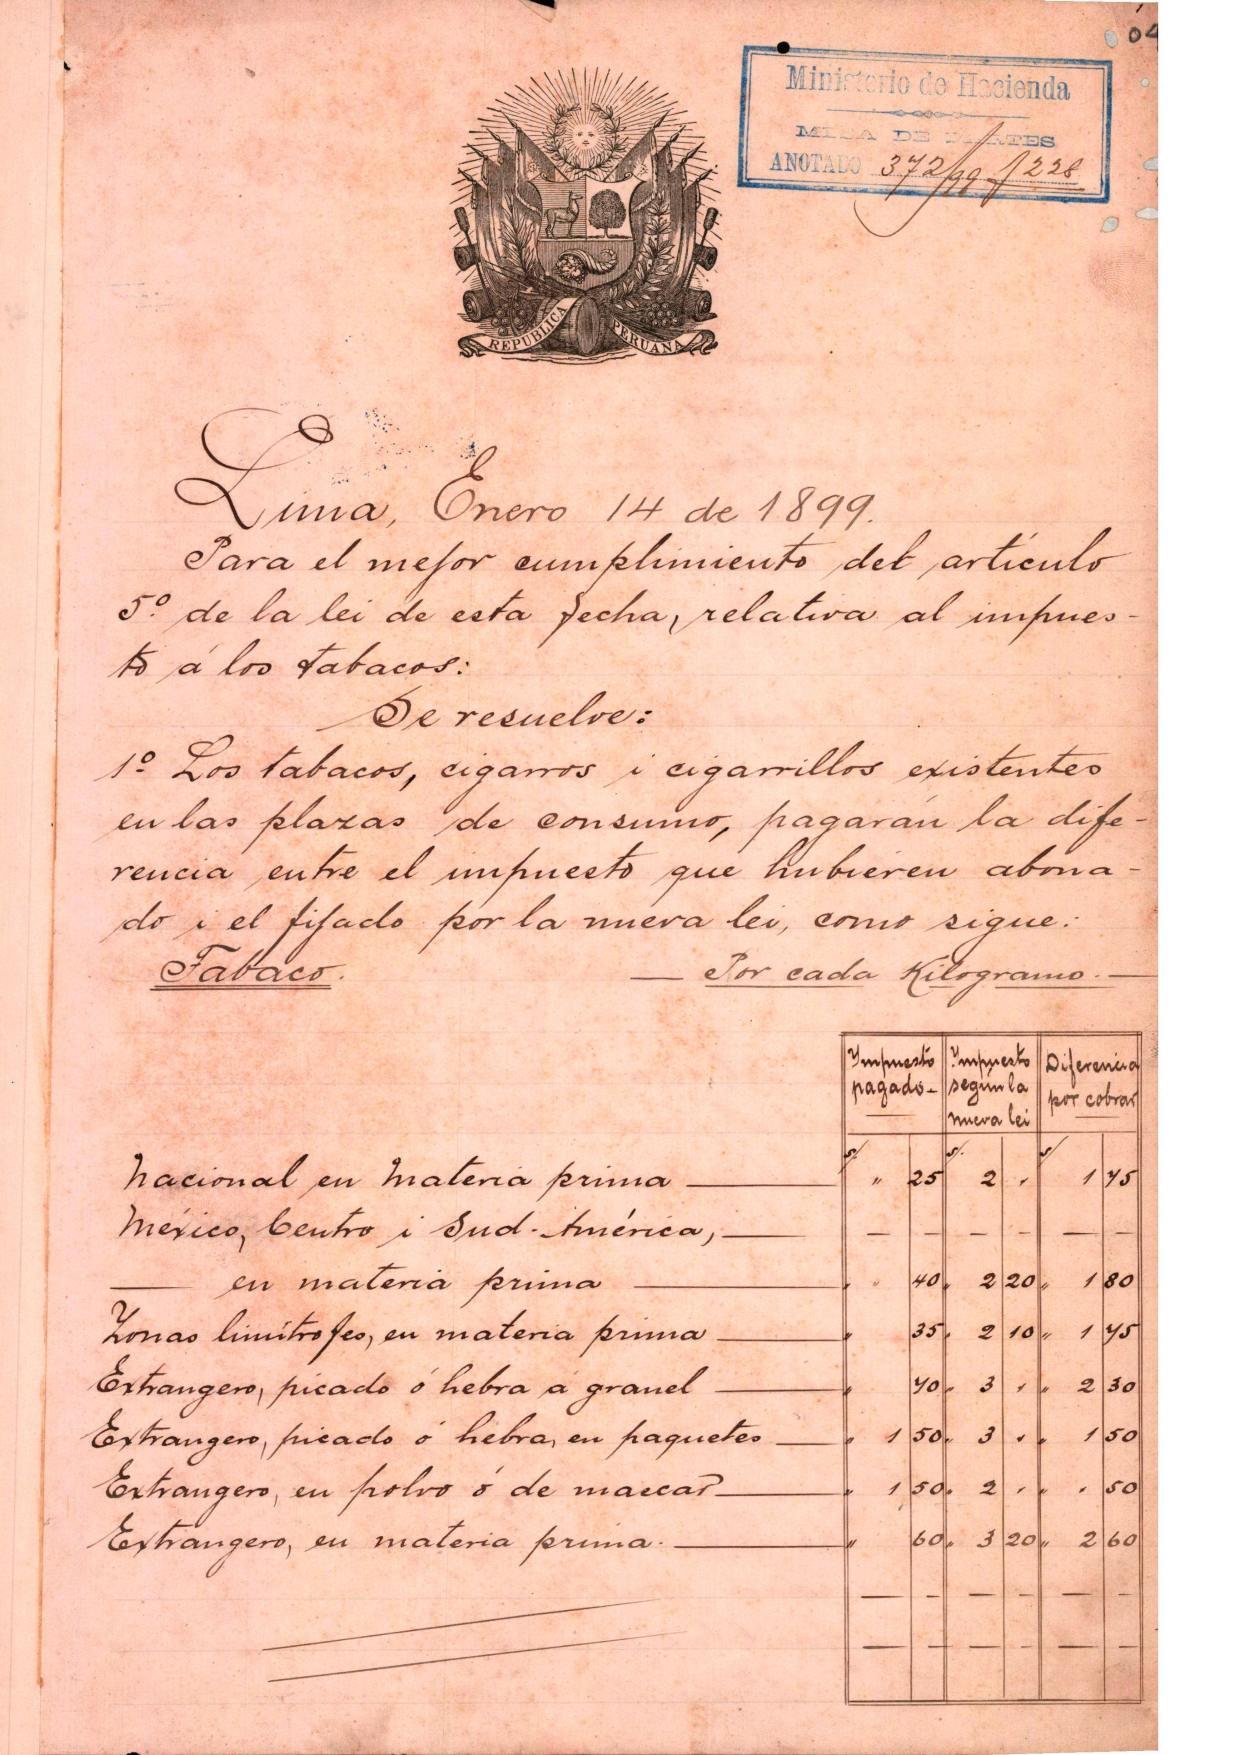 04
Ministerio de Hacienda
MESA DE PARTES
ANOTADO 372/99 f 228
REPUBLICA PERUANA
Lima, Enero 14 de 1899.
Para el mejor cumplimiento del artículo
5º de la lei de esta fecha, relativa al impues-
to á los tabacos:
Se resuelve:
1º Los tabacos, cigarros i cigarrillos existentes
en las plazas de consumo, pagarán la dife-
rencia entre el impuesto que hubieren abona-
do i el fijado por la nueva lei, como sigue:
Tabaco. — Por cada Kilogramo. —
Impuesto pagado — Impuesto según la nueva lei Diferencia por cobrar
S/ S/ S/
Nacional en materia prima — " 25 2 " 1 75
México, Centro i Sud-América, — — — — — — —
— en materia prima — " " 40 " 2 20 " 1 80
Zonas limítrofes, en materia prima — " 35 " 2 10 " 1 75
Extrangero, picado ó hebra á granel — " 70 " 3 " " 2 30
Extrangero, picado ó hebra, en paquetes — " 1 50 " 3 " " 1 50
Extrangero, en polvo ó de mascar — " 1 50 " 2 " " " 50
Extrangero, en materia prima. — " 60 " 3 20 " 2 60